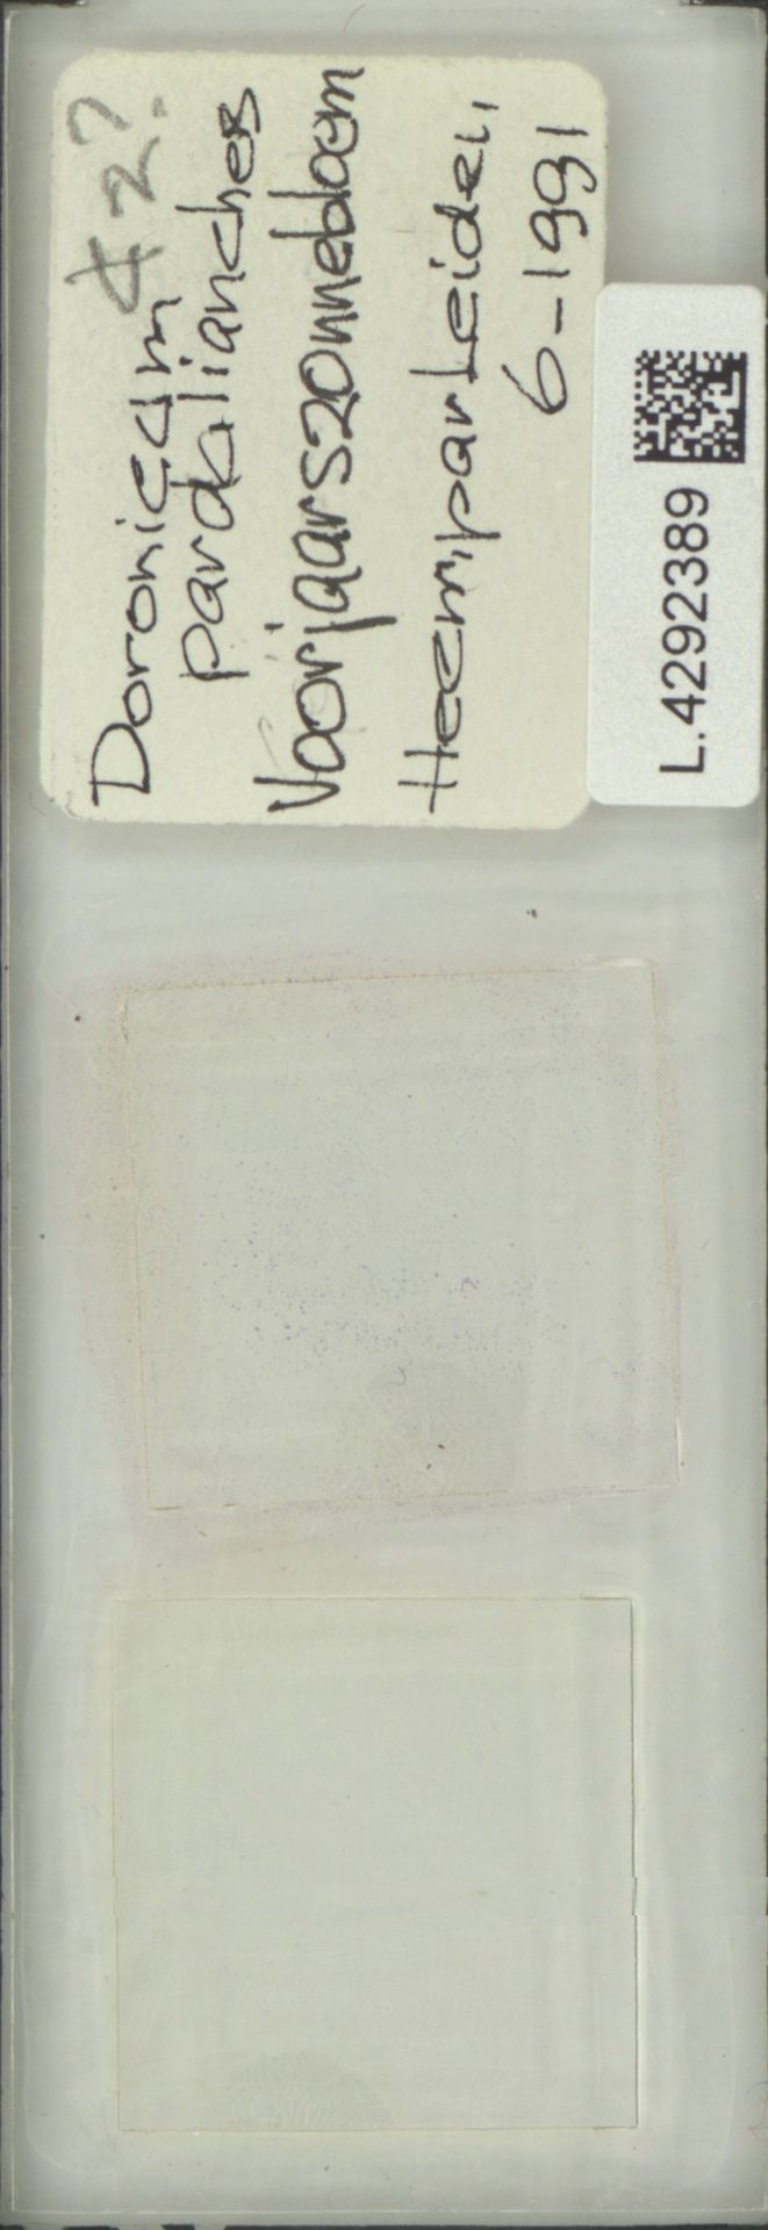 42?
Doronicum
pardalianches
Voorjaarszonnebloem
Heempark Leiden
6-1991
L.4292389